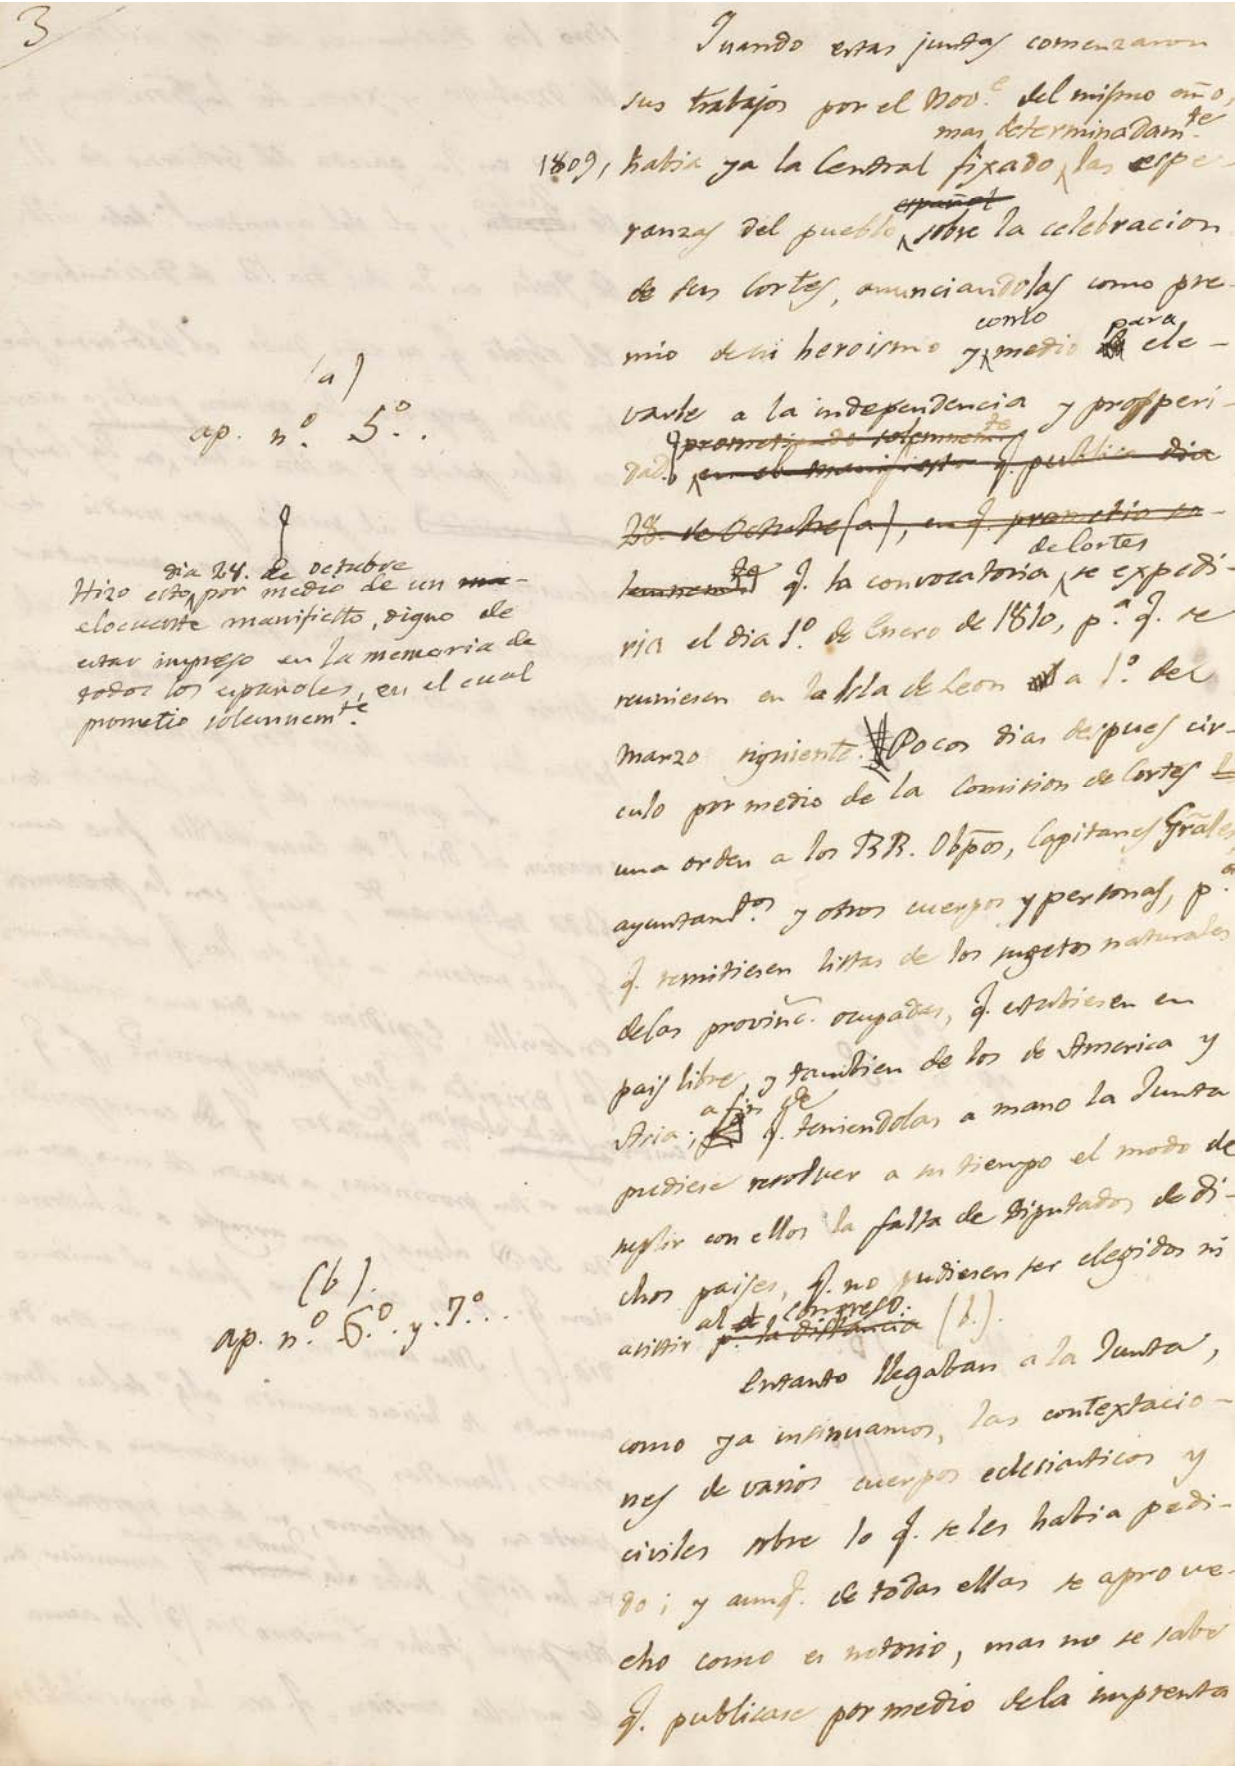 3
Quando estas juntas comenzaron
sus trabajos por el Nov.e del mismo año,
mas determinadam.te
1809, habia ya la Central fixado las espe-
español
ranzas del pueblo sobre la celebracion
de sus Cortes, anunciandolas como pre-
como para
mio de su heroismo y medio ele-
varle a la independencia y prosperi-
prometiendo solemnem.te
dad. en el manifiesto q. publico dia
28. de Octubre (a), en q. prometio so-
de Cortes
lemnem.te q. la convocatoria se expedi-
ria el dia 1.o de Enero de 1810, p.a q. se
reuniesen en la Isla de Leon a 1.o de
marzo siguiente. Pocos dias despues cir-
culo por medio de la Comision de Cortes
una orden a los RR. Obpos, Capitanes Grales,
ayuntam.tos y otros cuerpos y personas, p.a
q. remitiesen listas de los sugetos naturales
de las provinc. ocupadas, q. estubiesen en
pais libre, y tambien de los de America y
a fin de
Asia; q. teniendolas a mano la Junta
pudiese resolver a su tiempo el modo de
suplir con ellos la falta de diputados de di-
chos paises, q. no pudiesen ser elegidos ni
al congreso.
asistir p. la distancia (b.).
Entanto llegaban a la Junta,
como ya insinuamos, las contextacio-
nes de varios cuerpos eclesiasticos y
civiles sobre lo q. se les habia pedi-
do; y aunq. de todas ellas se aprove-
cho como es notorio, mas no se sabe
q. publicase por medio de la imprenta
(a)
ap. n.o 5.o.
dia 28. de octubre
Hizo esto por medio de un
elocuente manifiesto, digno de
estar impreso en la memoria de
todos los españoles, en el cual
prometio solemnem.te
(b).
ap. n.o 6.o. y. 7.o..